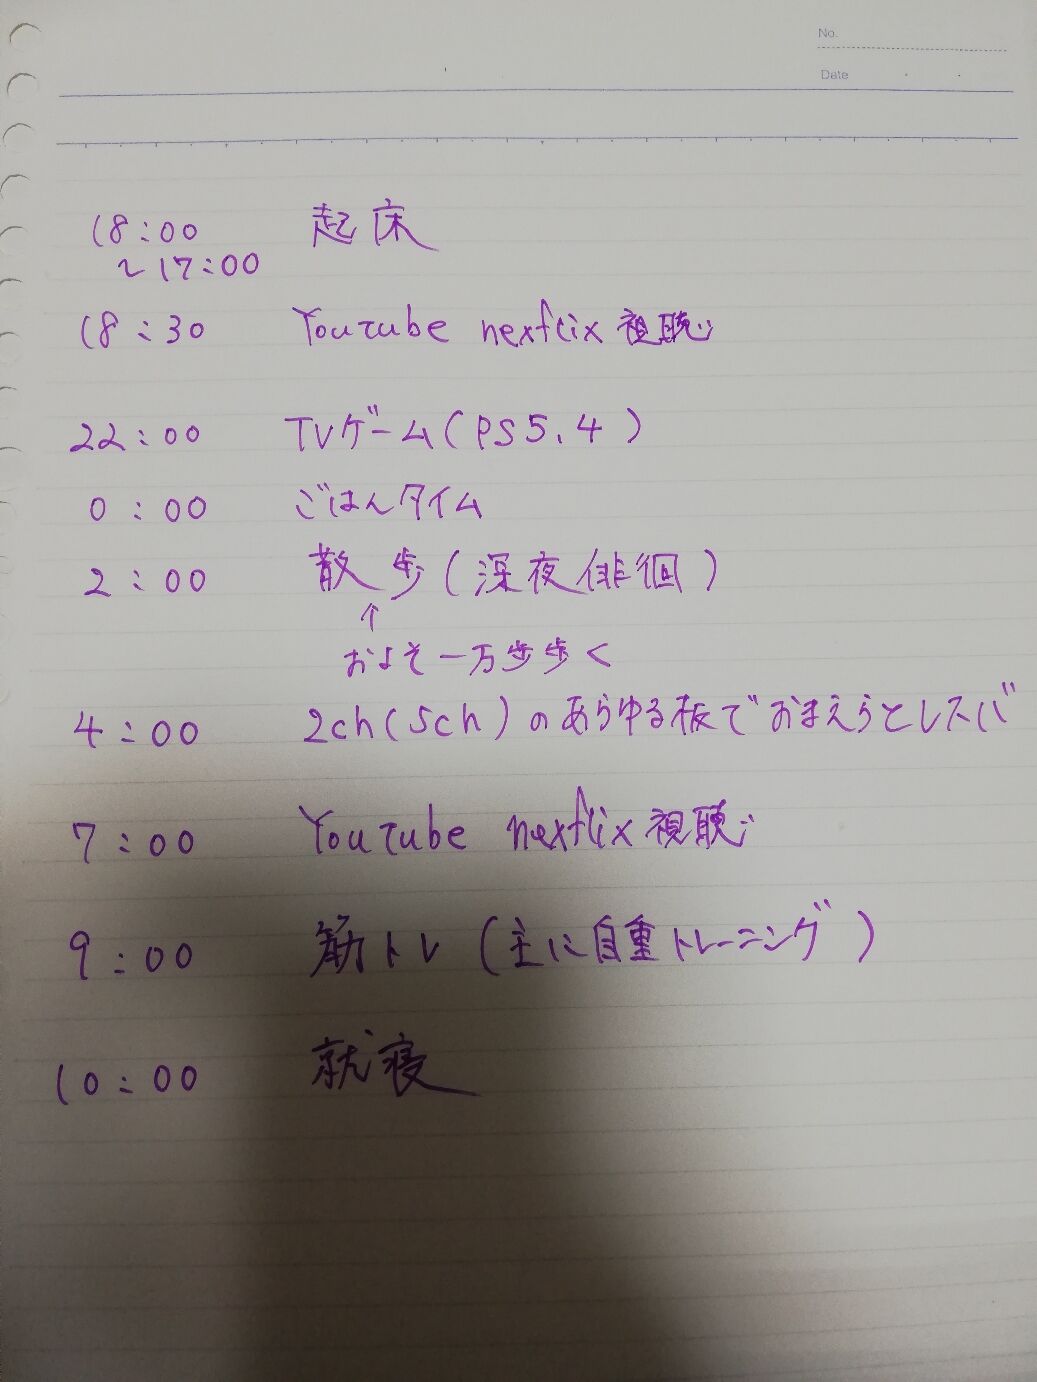 No.
Date
18:00 起床
~17:00
18:30 Youtube nexflix視聴
22:00 TVゲーム(PS5、4)
0:00 ごはんタイム
2:00 散歩(深夜俳徊)
↑
およそ一万歩歩く
4:00 2ch(5ch)のあらゆる板でおまえらとレスバ
7:00 Youtube nexflix視聴
9:00 筋トレ(主に自重トレーニング)
10:00 就寝